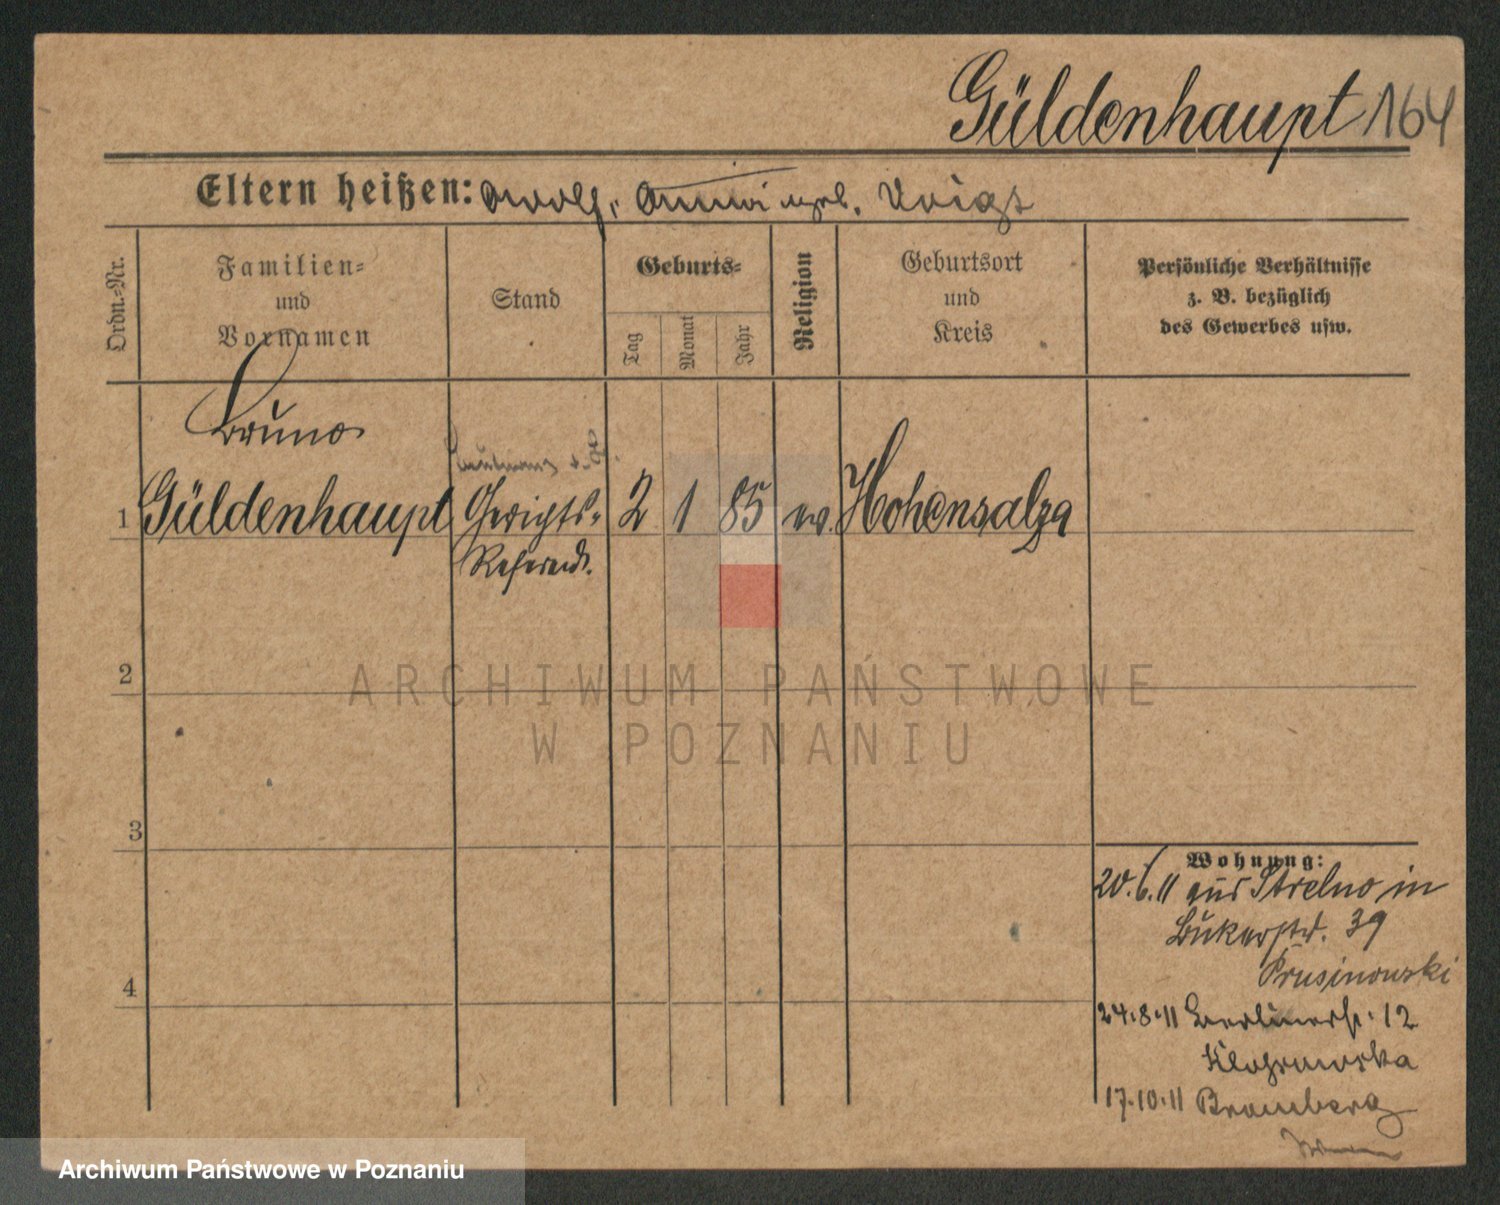 Güldenhaupt 164
Eltern heißen: Adolf, Anna geb. Voigt
Ordn.-Nr.
Familien-
und
Vornamen
Stand
Geburts-
Tag
Monat
Jahr
Religion
Geburtsort
und
Kreis
Persönliche Verhältnisse
z. B. bezüglich
des Gewerbes usw.
Bruno
1 Güldenhaupt Gerichts- 2 1 85 ev. Hohensalza
Referend.
2
3
4
Wohnung:
20.6.11 aus Strelno in
Bukerstr. 39
Prusinowski
24.8.11 Berlinerstr. 12
17.10.11 Bromberg
ARCHIWUM PAŃSTWOWE
W POZNANIU
Archiwum Państwowe w Poznaniu